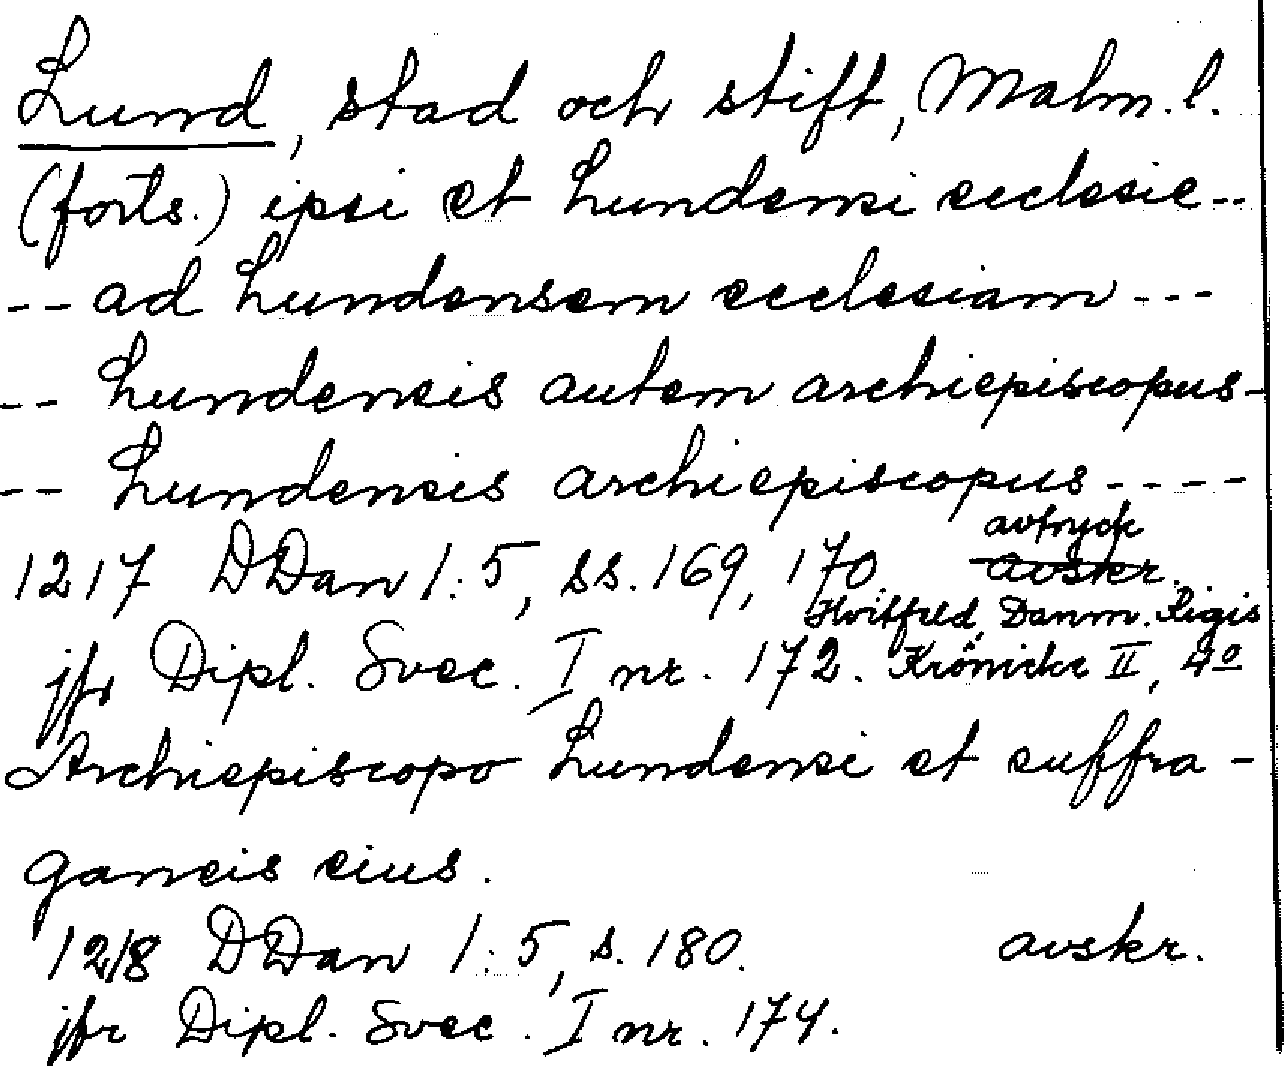 Lund, stad och stift, Malm. l.
(forts.) ipsi et Lundensi ecclesie --
-- ad Lundensem ecclesiam ---
-- Lundensis autem archiepiscopus -
-- Lundensis archiepiscopus ----
avtryck
1217 DDan 1:5, ss. 169, 170. avskr.
Hvitfeld, Danm. Rigis
jfr Dipl. Svec. I nr. 172. Krönicke II, 4º
Archiepiscopo Lundensi et suffra-
ganeis eius.
1218 DDan 1:5, s. 180. avskr.
jfr Dipl. Svec. I nr. 174.